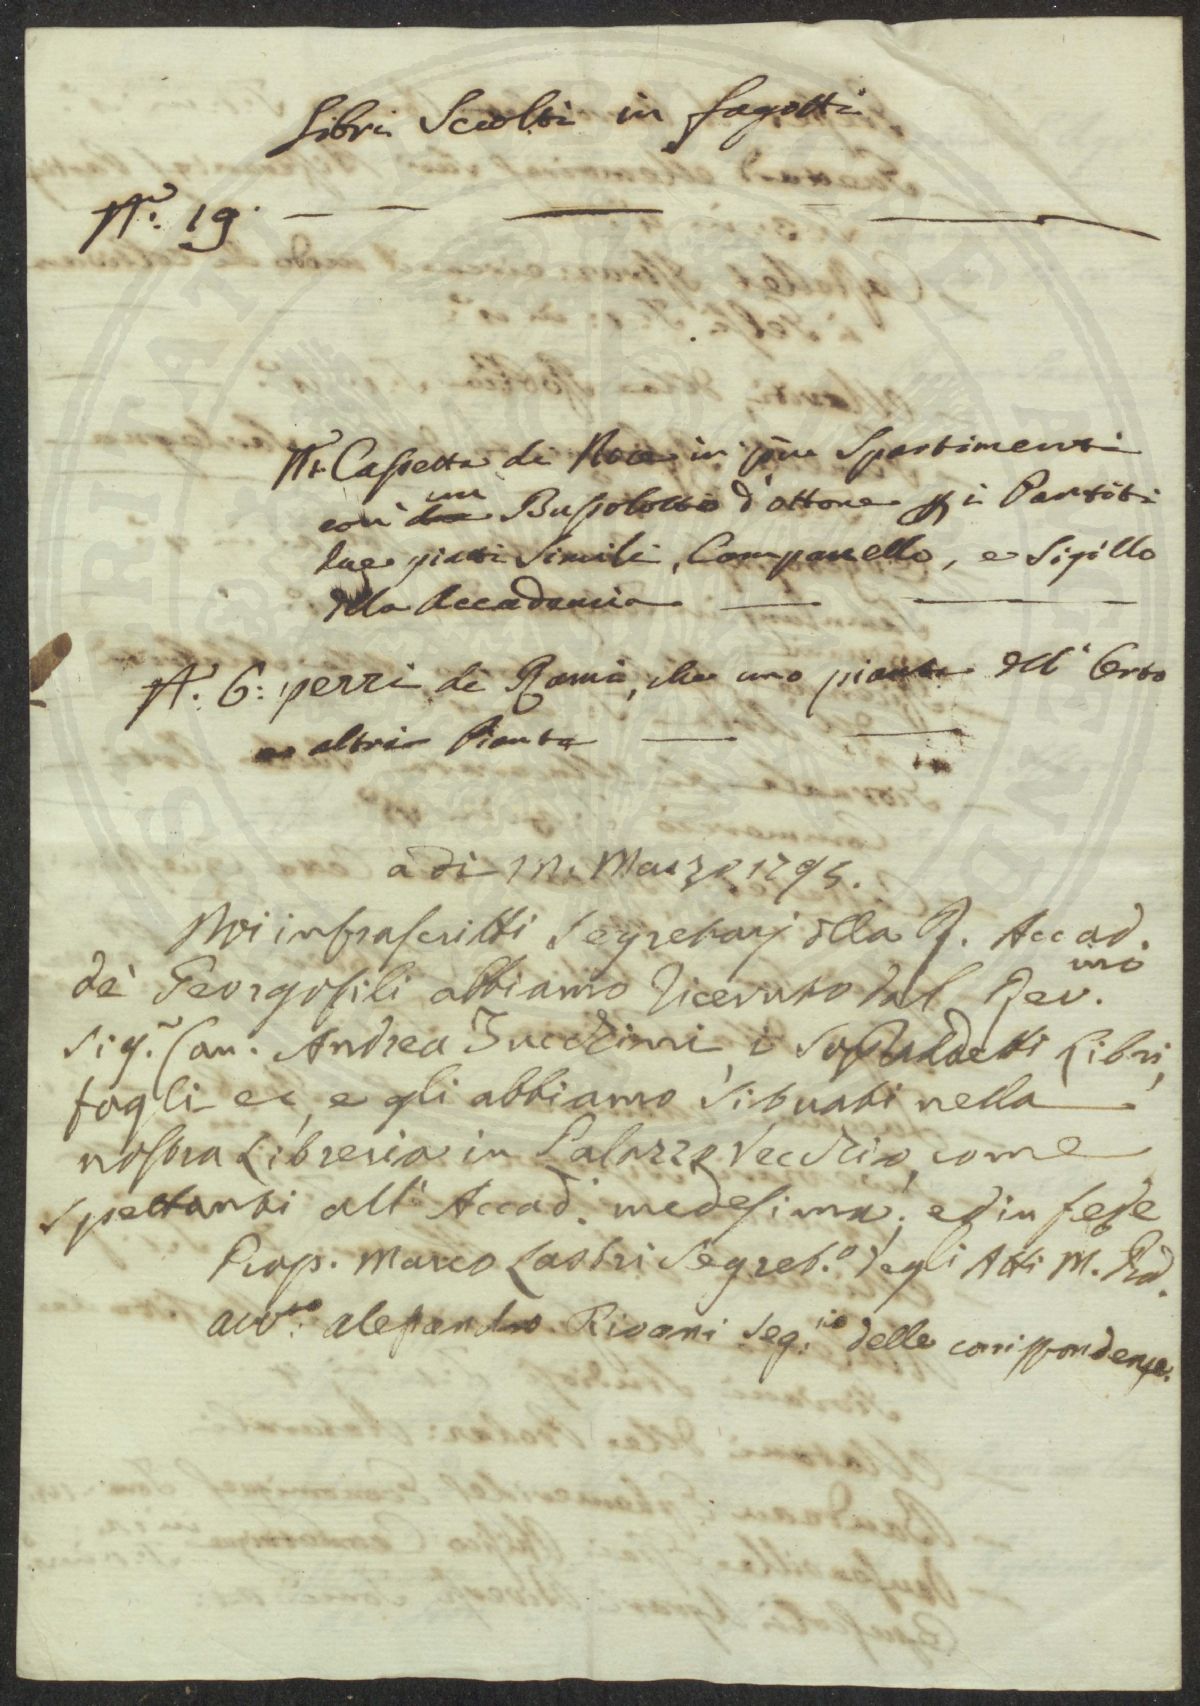 Libri Sciolti in fagotti
N.° 19. — — —
N.° Cassetta di Noce in più Spartimenti
con un Bussolotto d'ottone p i Partiti
due piatti Simili, Campanello, e Sigillo
della Accademia — —
N.° 6: pezzi di Rami, che uno pianta dell' Orto
e altri Pianta — —
a dì 12. Marzo 1795.
Noi infrascritti Segretarj della R. Accad.
de' Georgofili abbiamo ricevuto dal Rev.mo
Sig.r Can. Andrea Zucchini, i Sopraddetti Libri,
fogli ec, e gli abbiamo situati nella
nostra Libreria in Palazzo Vecchio, come
spettanti all' Accad. medesima; ed in fede
Prop. Marco Lastri Segret.o degli Atti M. Pr.
Avv.to Alessandro Rivani Seg.rio delle corrispondenze.